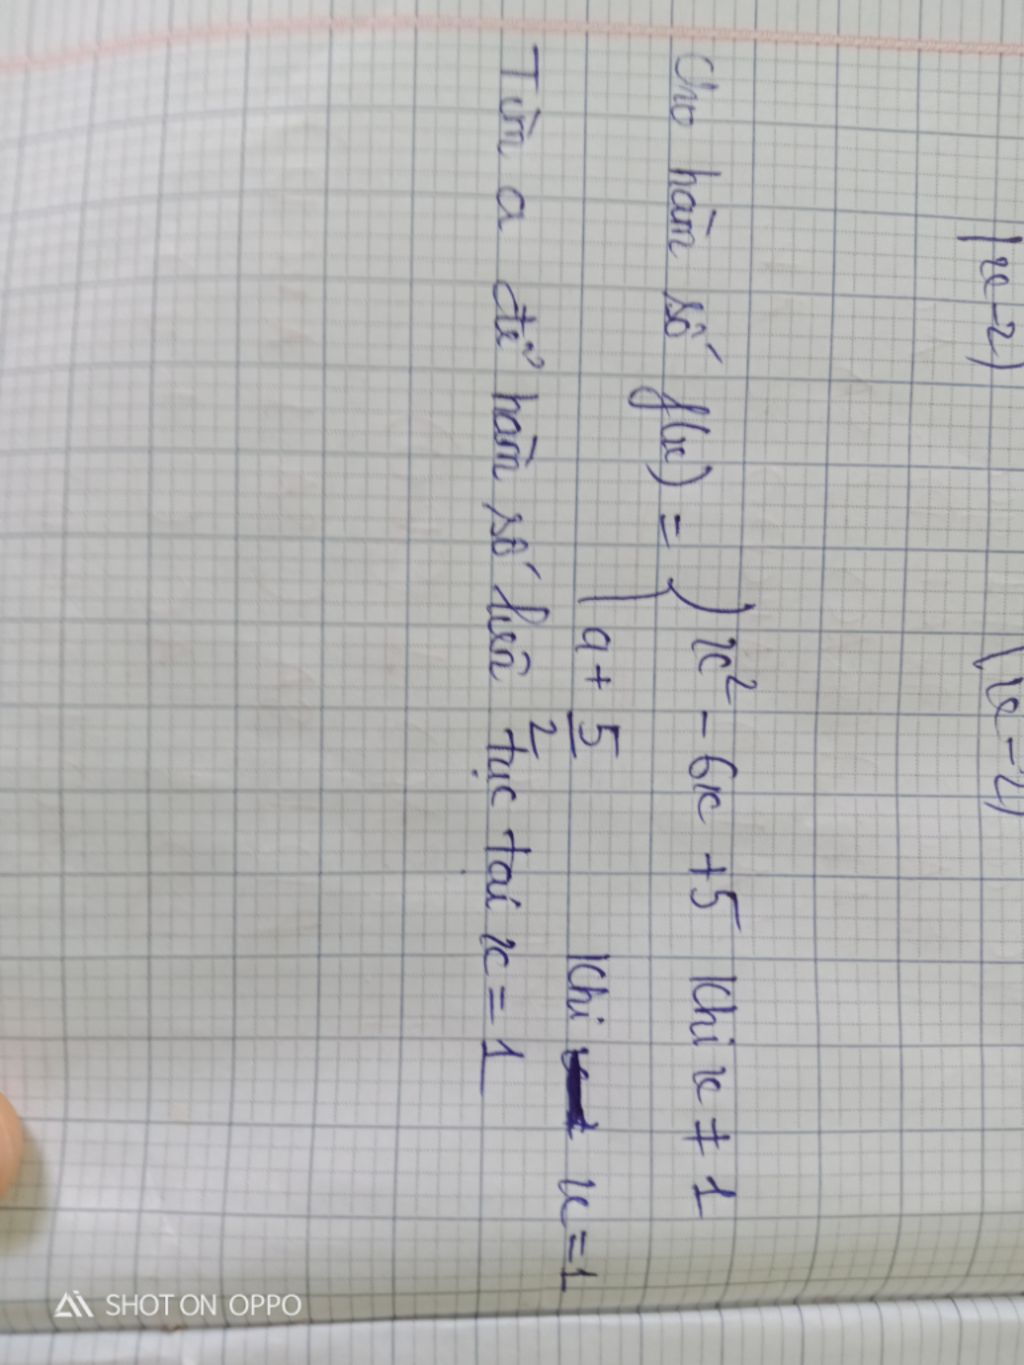 |x-2)
(x-2)
Cho hàm số f(x) = { x² - 6x + 5 khi x ≠ 1
a + 5/2 khi x = 1
Tìm a để hàm số liên tục tại x = 1
SHOT ON OPPO